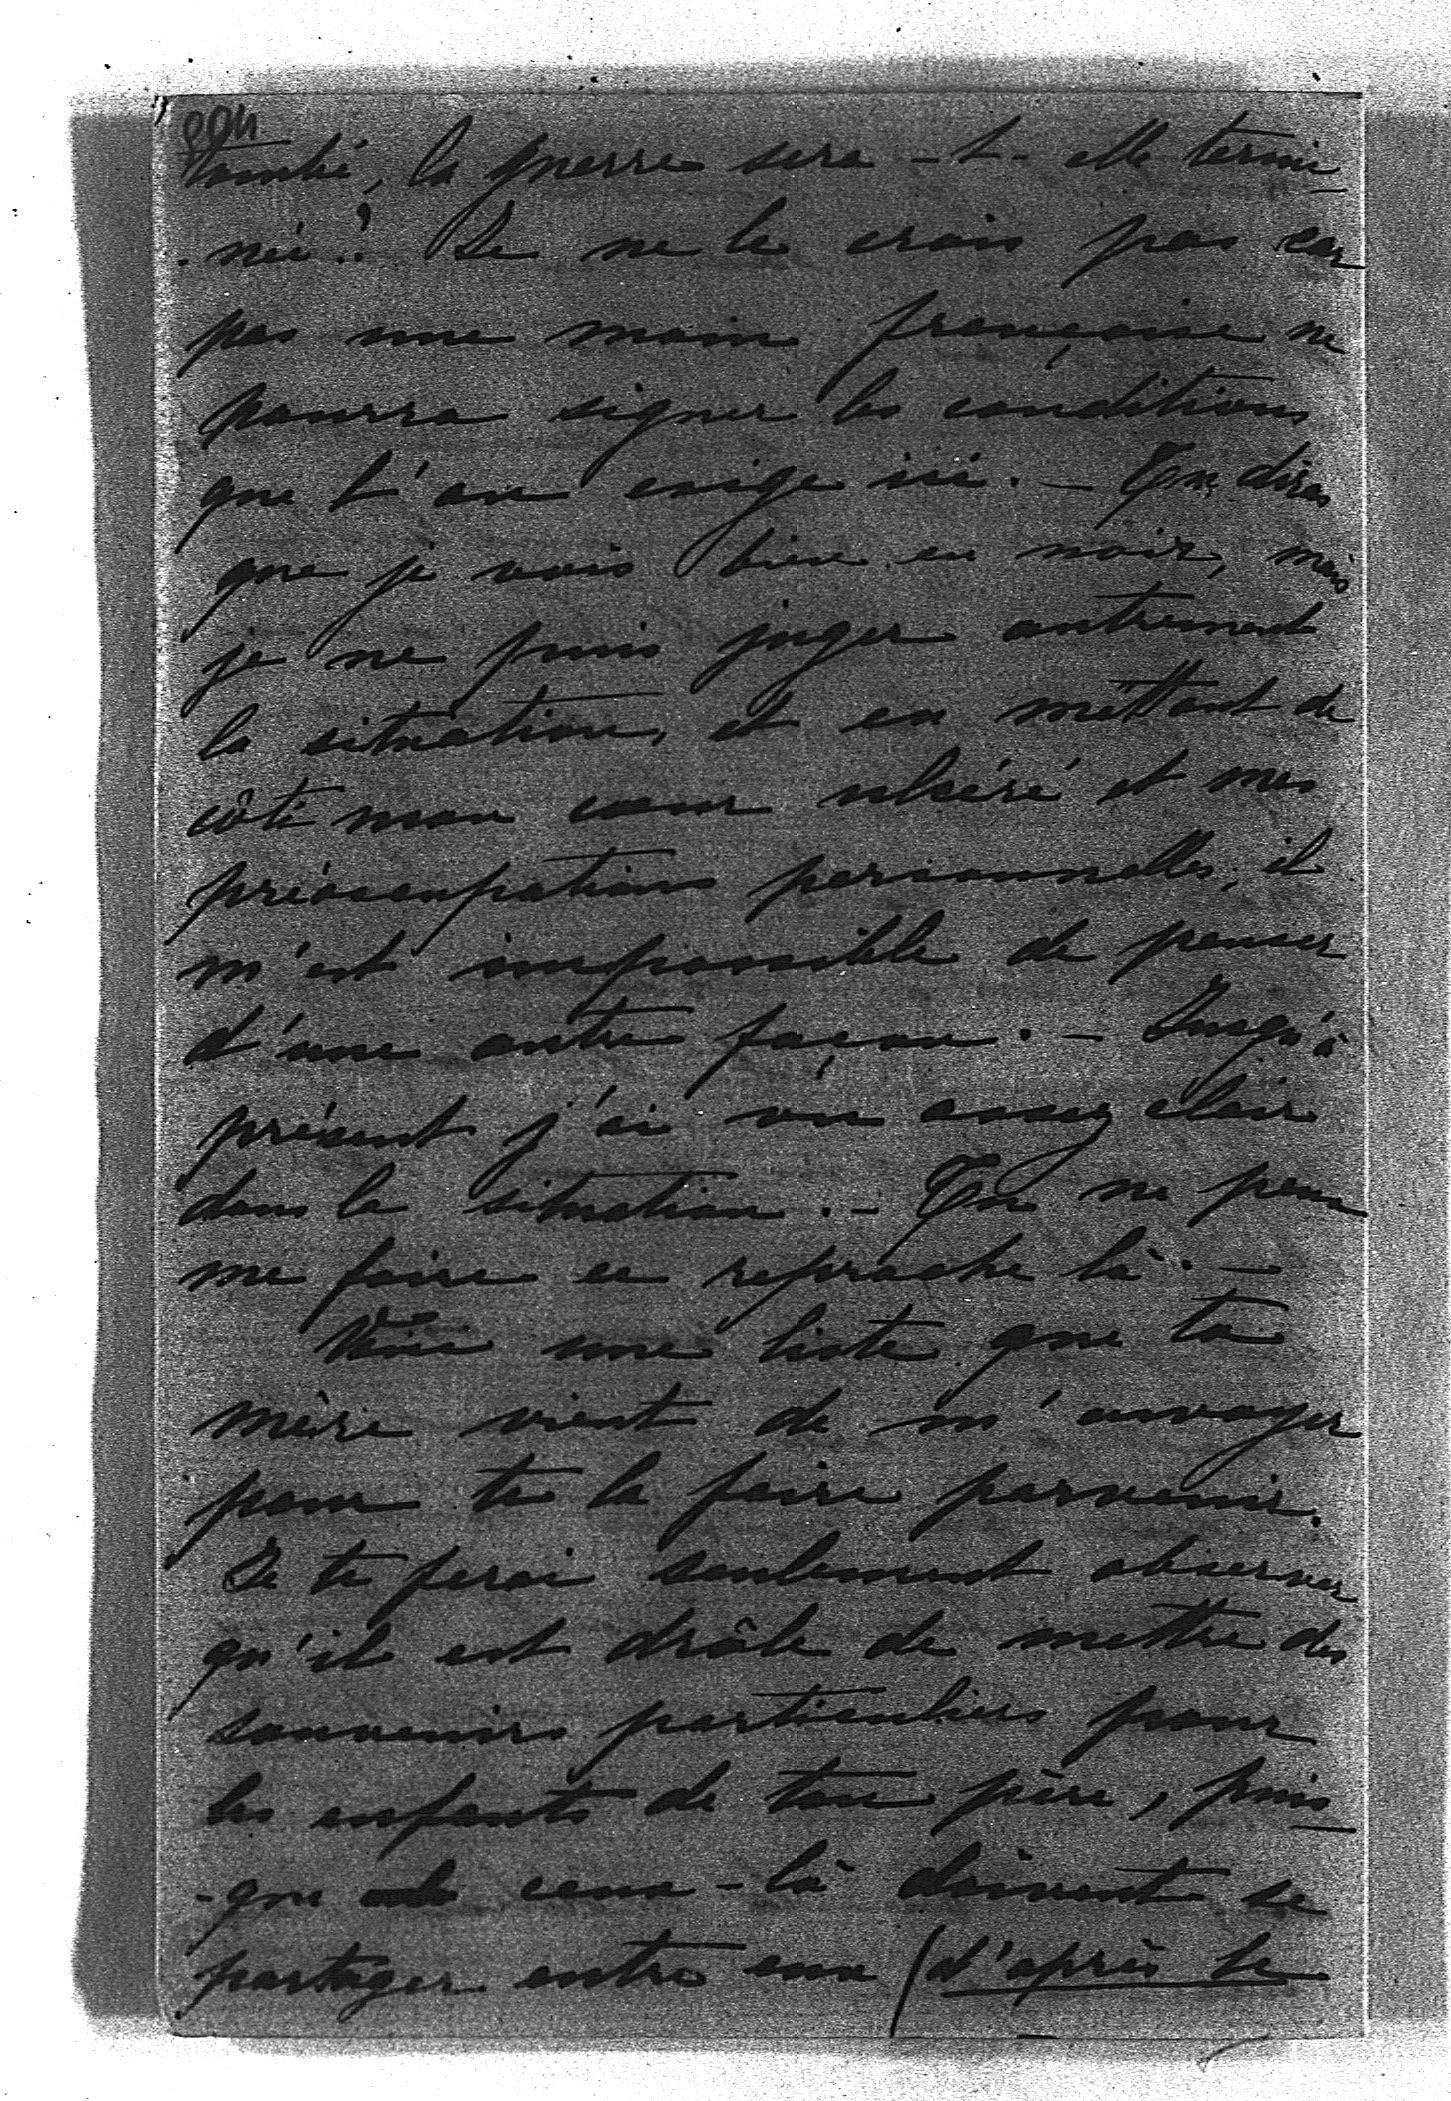 tombé, la guerre sera-t-elle termi-
-née? Je ne le crois pas car
pas une main française ne
pourra signer les conditions
que l'on exige ici. — Tu diras
que je vois bien en noir, mais
je ne puis juger autrement
la situation, et en mettant de
côté mon cœur ulcéré et mes
préoccupations personnelles, il
m'est impossible de penser
d'une autre façon. — Jusqu'à
présent j'ai vu assez clair
dans la situation. — Tu ne peux
me faire ce reproche là. —
Voici une liste que ta
mère vient de m'envoyer
pour te la faire parvenir.
Je te ferai seulement observer
qu'il est drôle de mettre des
souvenirs particuliers pour
les enfants de ton père, puis-
-que ceux-là doivent se
partager entre eux (d'après le